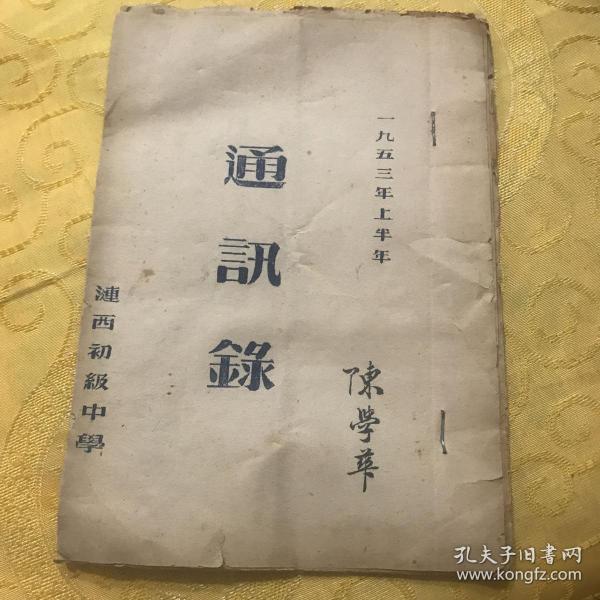 一九五三年上半年
通訊錄
漣西初級中學
陳學華
孔夫子旧书网
www.kongfz.com